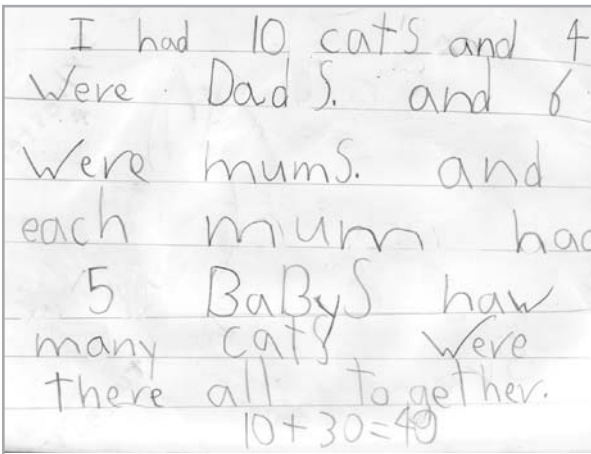 I had 10 cats and 4
were Dads. and 6
were mums. and
each mum had
5 BaBys haw
many cats were
there all together.
10+30=40